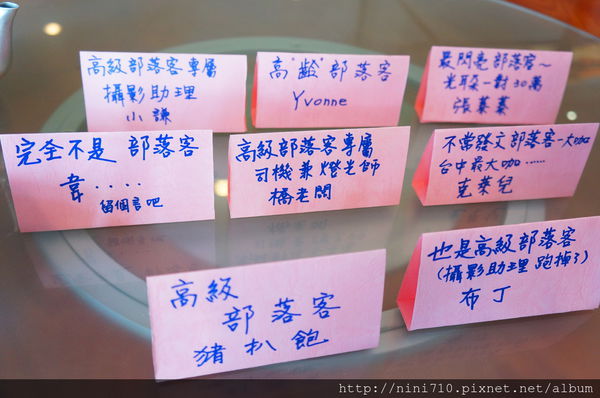 高級部落客專屬
攝影助理
小謙
高"齡"部落客
Yvonne
最閃亮部落客~
光耳環一對30萬
張蓁蓁
完全不是 部落客
韋....
留個言吧
高級部落客專屬
司機兼燈光師
橋老闆
不常發文部落客-大咖
台中最大咖......
克萊兒
高級
部落客
豬扒飽
也是高級部落客
(攝影助理跑掉了)
布丁
http://nini710.pixnet.net/album